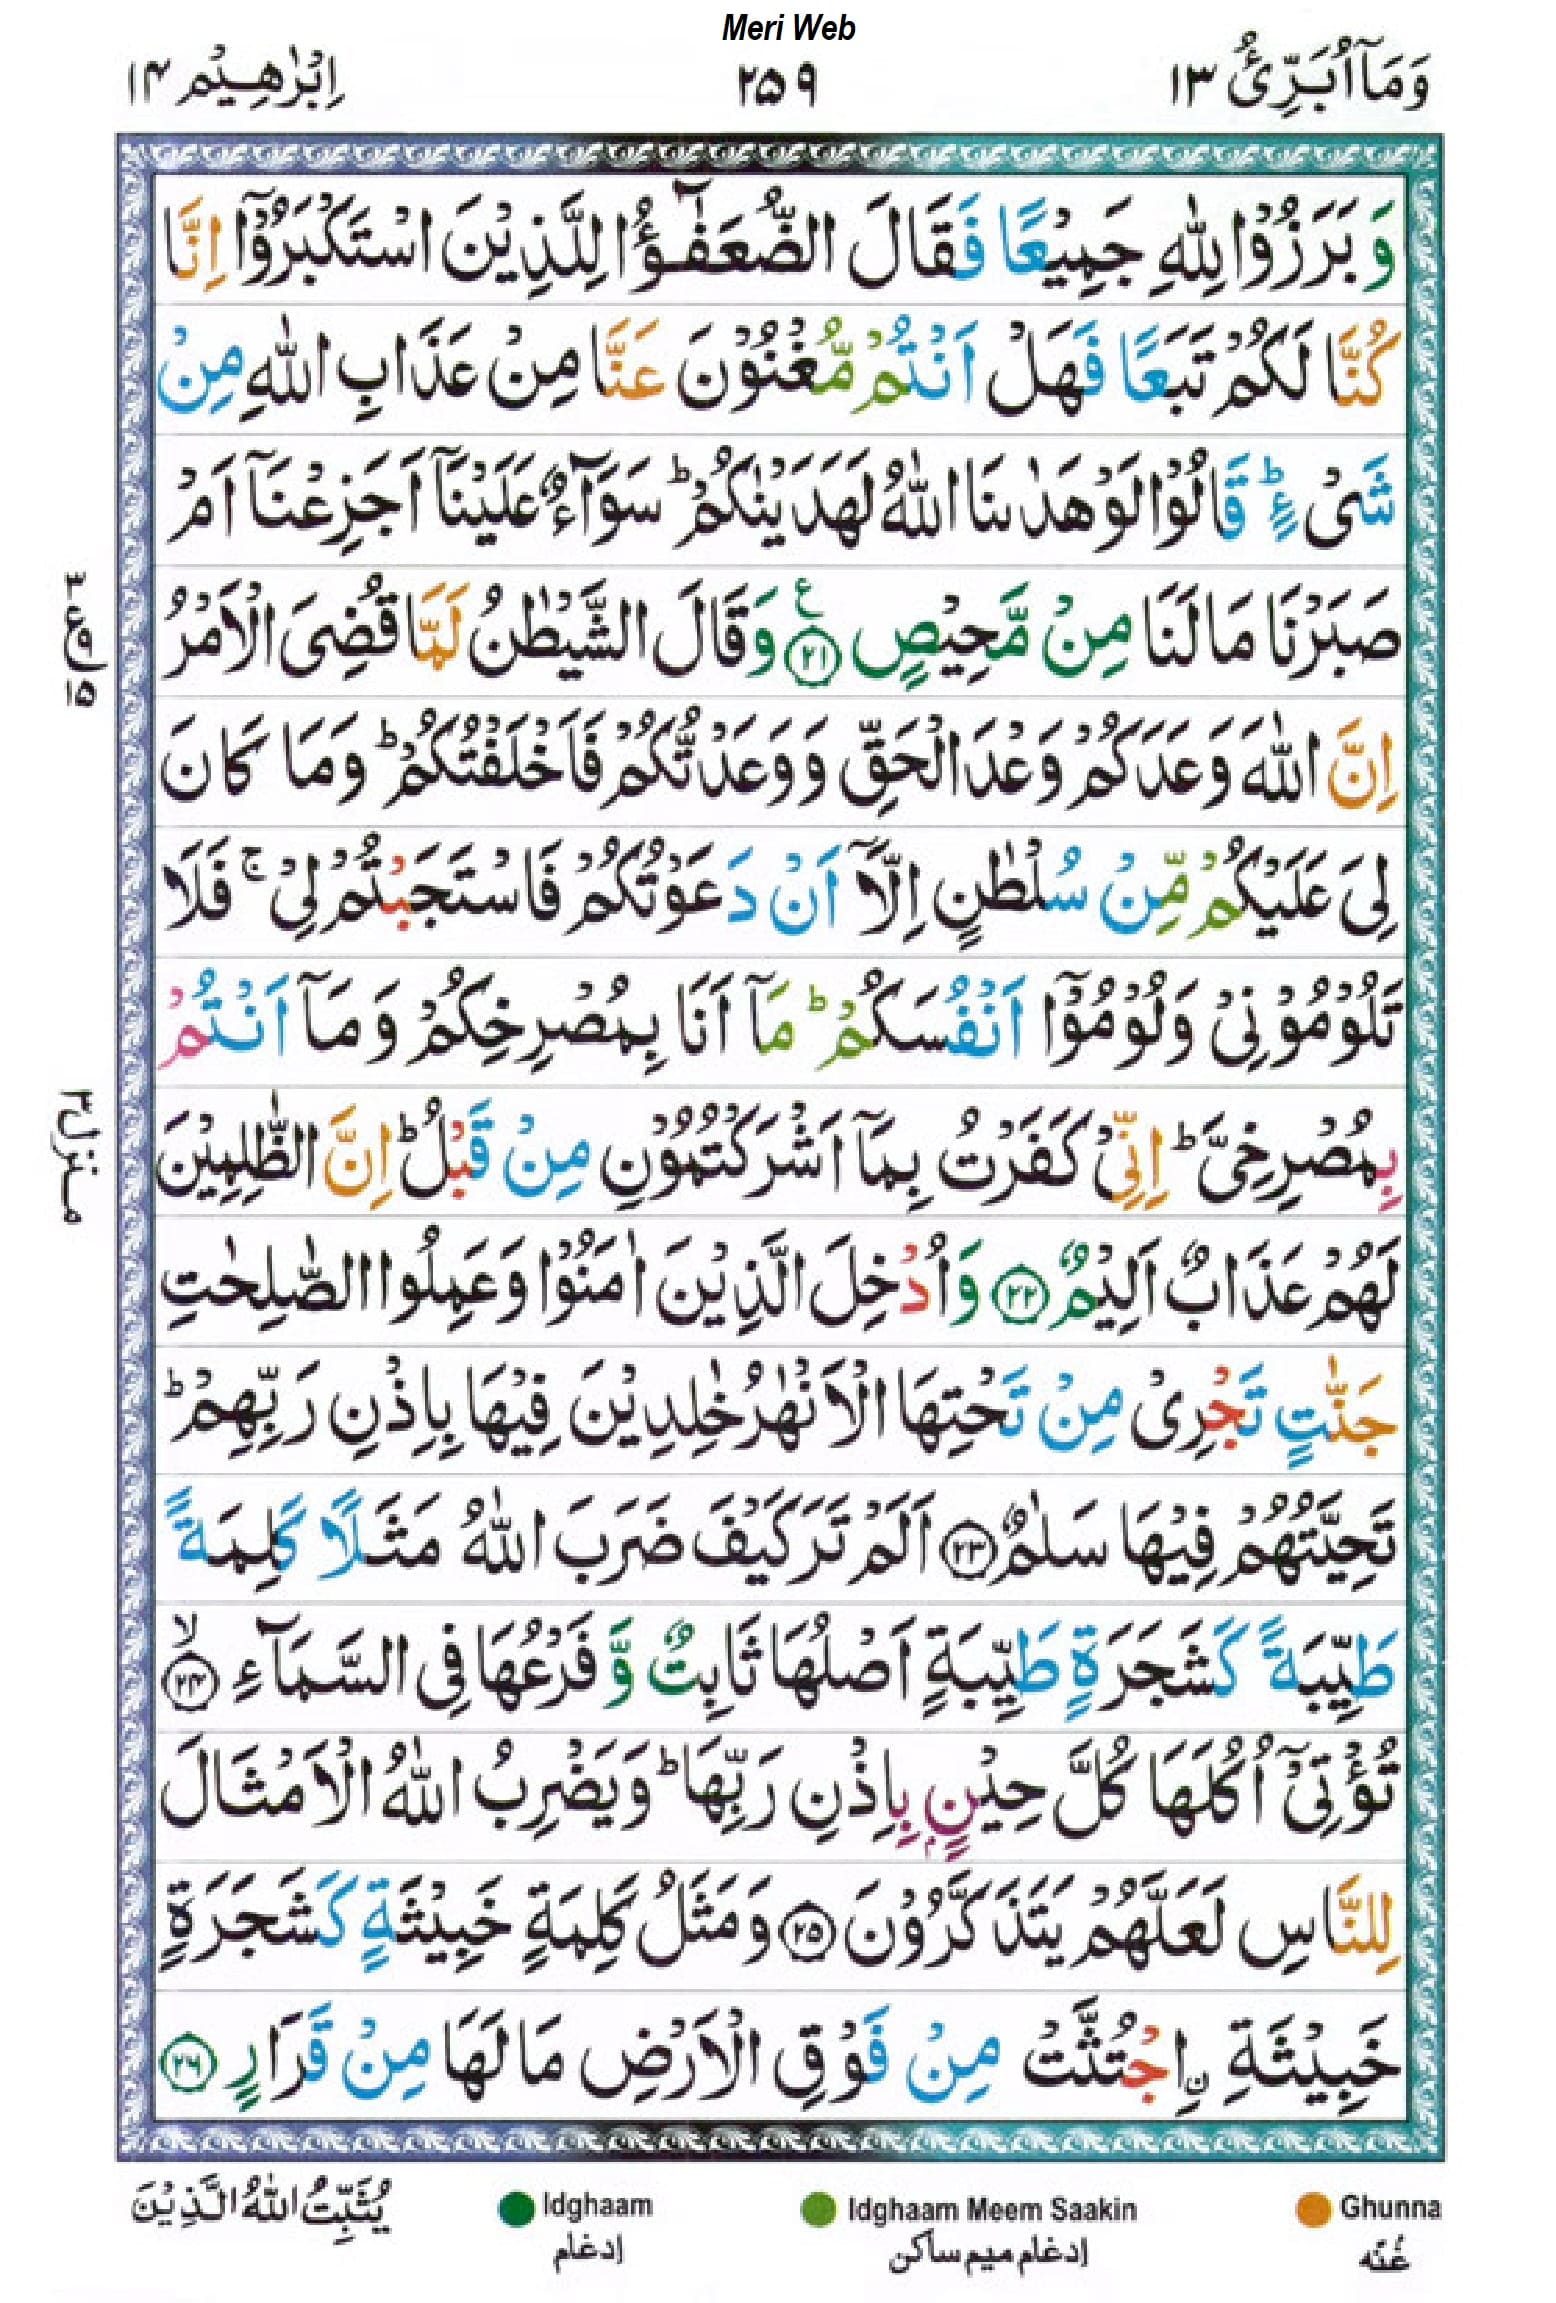 Meri Web
وَمَآ اُبَرِّئُ ١٣
٢٥٩
اِبْرٰهِيْم ١٤
وَبَرَزُوْا لِلّٰهِ جَمِيْعًا فَقَالَ الضُّعَفٰٓؤُا لِلَّذِيْنَ اسْتَكْبَرُوْۤا اِنَّا
كُنَّا لَكُمْ تَبَعًا فَهَلْ اَنْتُمْ مُّغْنُوْنَ عَنَّا مِنْ عَذَابِ اللّٰهِ مِنْ
شَىْءٍ ؕ قَالُوْا لَوْ هَدٰٮنَا اللّٰهُ لَهَدَيْنٰكُمْ ؕ سَوَآءٌ عَلَيْنَاۤ اَجَزِعْنَاۤ اَمْ
صَبَرْنَا مَا لَنَا مِنْ مَّحِيْصٍ ﴿٢١﴾ ع وَقَالَ الشَّيْطٰنُ لَمَّا قُضِىَ الْاَمْرُ
ع ٣ ٩ ١٥
اِنَّ اللّٰهَ وَعَدَكُمْ وَعْدَ الْحَقِّ وَوَعَدْتُّكُمْ فَاَخْلَفْتُكُمْ ؕ وَمَا كَانَ
لِىَ عَلَيْكُمْ مِّنْ سُلْطٰنٍ اِلَّاۤ اَنْ دَعَوْتُكُمْ فَاسْتَجَبْتُمْ لِىْ ۚ فَلَا
تَلُوْمُوْنِىْ وَلُوْمُوْۤا اَنْفُسَكُمْ ؕ مَاۤ اَنَا بِمُصْرِخِكُمْ وَمَاۤ اَنْتُمْ
بِمُصْرِخِىَّ ؕ اِنِّىْ كَفَرْتُ بِمَاۤ اَشْرَكْتُمُوْنِ مِنْ قَبْلُ ؕ اِنَّ الظّٰلِمِيْنَ
منزل ٣
لَهُمْ عَذَابٌ اَلِيْمٌ ﴿٢٢﴾ وَاُدْخِلَ الَّذِيْنَ اٰمَنُوْا وَعَمِلُوا الصّٰلِحٰتِ
جَنّٰتٍ تَجْرِىْ مِنْ تَحْتِهَا الْاَنْهٰرُ خٰلِدِيْنَ فِيْهَا بِاِذْنِ رَبِّهِمْ ؕ
تَحِيَّتُهُمْ فِيْهَا سَلٰمٌ ﴿٢٣﴾ اَلَمْ تَرَ كَيْفَ ضَرَبَ اللّٰهُ مَثَلًا كَلِمَةً
طَيِّبَةً كَشَجَرَةٍ طَيِّبَةٍ اَصْلُهَا ثَابِتٌ وَّفَرْعُهَا فِى السَّمَآءِ ۙ ﴿٢٤﴾
تُؤْتِىْۤ اُكُلَهَا كُلَّ حِيْنٍۢ بِاِذْنِ رَبِّهَا ؕ وَيَضْرِبُ اللّٰهُ الْاَمْثَالَ
لِلنَّاسِ لَعَلَّهُمْ يَتَذَكَّرُوْنَ ﴿٢٥﴾ وَمَثَلُ كَلِمَةٍ خَبِيْثَةٍ كَشَجَرَةٍ
خَبِيْثَةِ ن اِجْتُثَّتْ مِنْ فَوْقِ الْاَرْضِ مَا لَهَا مِنْ قَرَارٍ ﴿٢٦﴾
Ghunna
غُنّه
Idghaam Meem Saakin
إدغام ميم ساكن
Idghaam
إدغام
يُثَبِّتُ اللّٰهُ الَّذِيْنَ